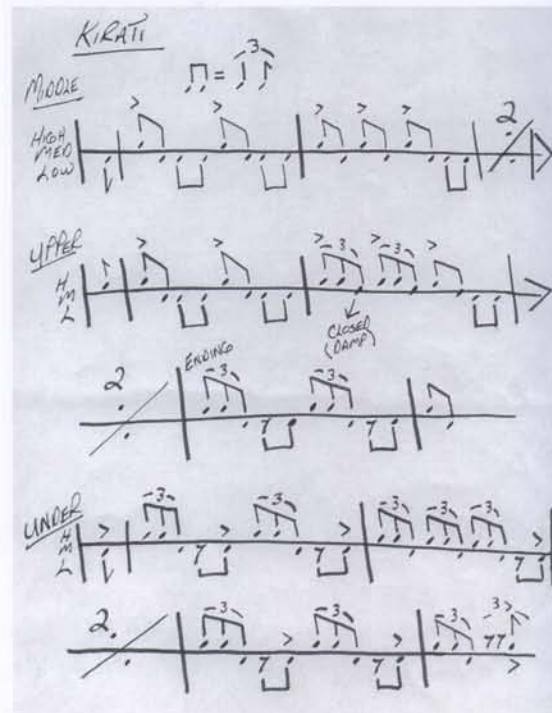 KIRATI
= 3
MIDDLE
HIGH
MED
LOW
> > > > > 2
UPPER
H
M
L
> > > 3 > 3 >
CLOSED
(DAMP)
2
ENDING
3 3
UNDER
H
M
L
> 3 > 3 > 3 3 3
2 3 > 3 > 3 3 >
>